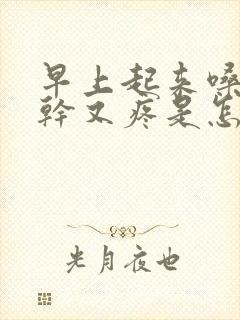 早上起来嗓
幹又疼是怎
光月夜也